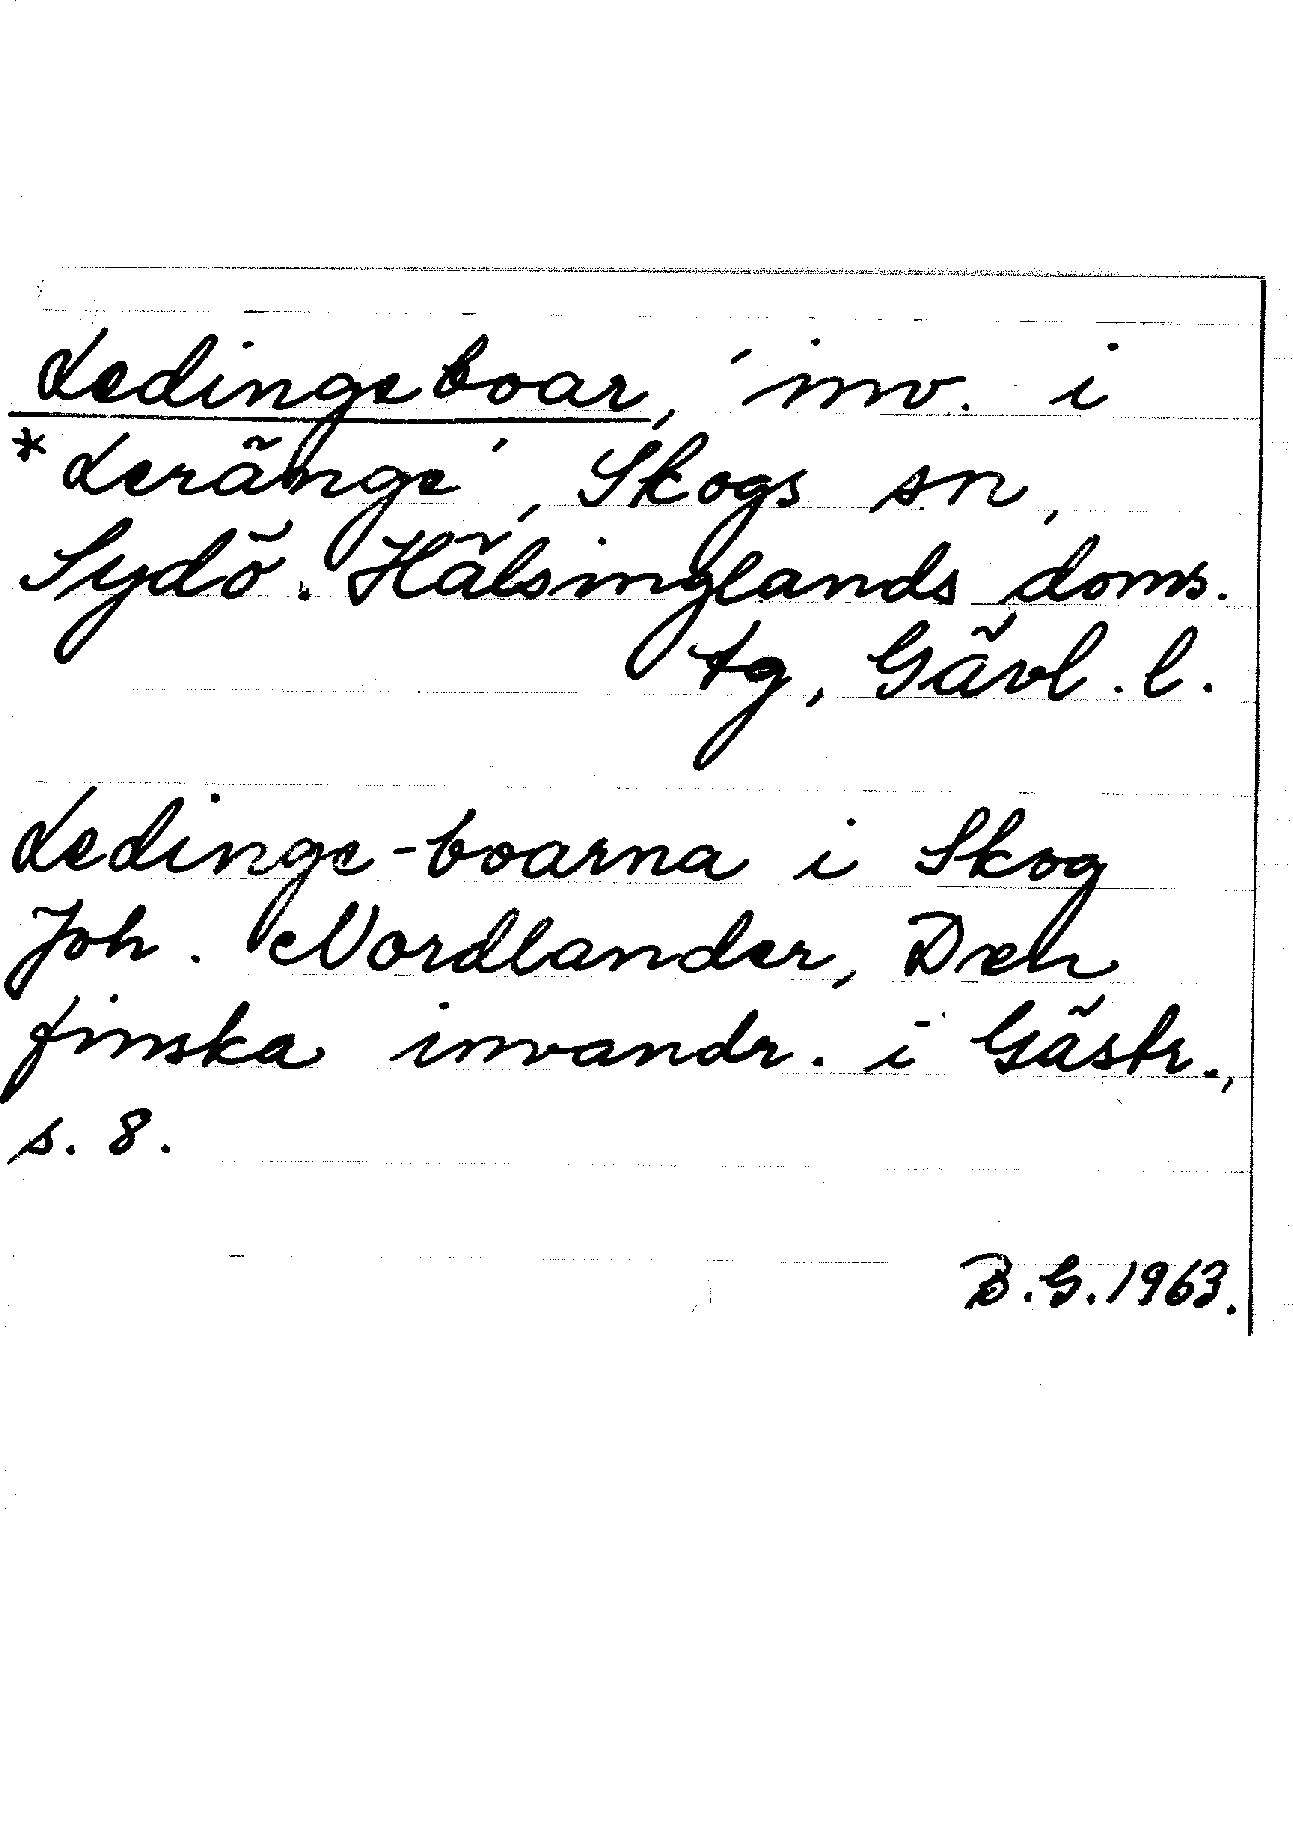 Ledingeboar, 'inv. i
*Leränge', Skogs sn,
Sydö. Hälsinglands doms.
tg, Gävl. l.
Ledinge-boarna i Skog
Joh. Nordlander, Den
finska invandr. i Gästr.,
s. 8.
B.G. 1963.